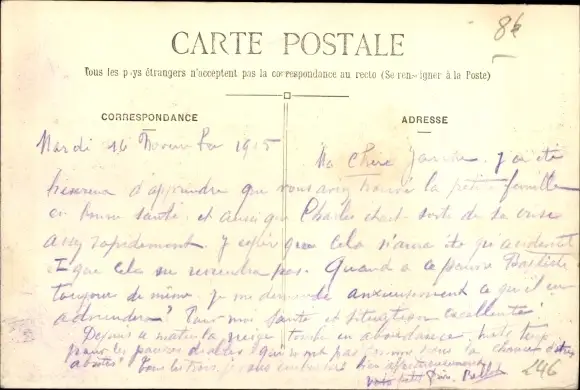 86
CARTE POSTALE
Tous les pays étrangers n'acceptent pas la correspondance au recto (Se renseigner à la Poste)
CORRESPONDANCE
ADRESSE
Mardi 16 Novembre 1915
Ma chère j'ai été
heureux d'apprendre que vous avez trouvé la petite famille
en bonne santé et aussi que Charles était sorti de sa crise
assez rapidement. J'espère que cela n'aura été qu'accident
que cela ne reviendra pas. Quand à ce pauvre Baptiste
toujours de même, je me demande anxieusement ce qu'il en
adviendra? Pour moi santé et situation excellente
Depuis ce matin la neige tombe en abondance
pour les pauvres qui n'ont pas comme nous la chance d'être
abrités tous les trois, je
246